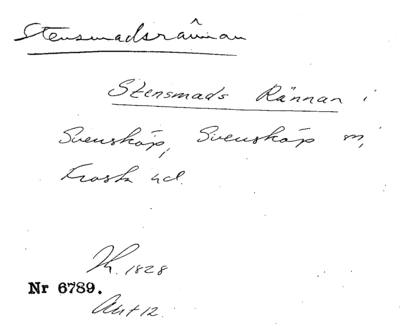 Stensmadsrännan
Stensmads Rännan i
Svensköp, Svensköp sn,
Frosta hd.
Kt. 1828
Nr 6789.
Akt 12.